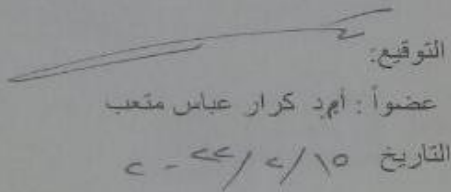 التوقيع:
عضواً : أ.م.د كرار عباس متعب
التاريخ ١٥/٢/٢٠٢٢